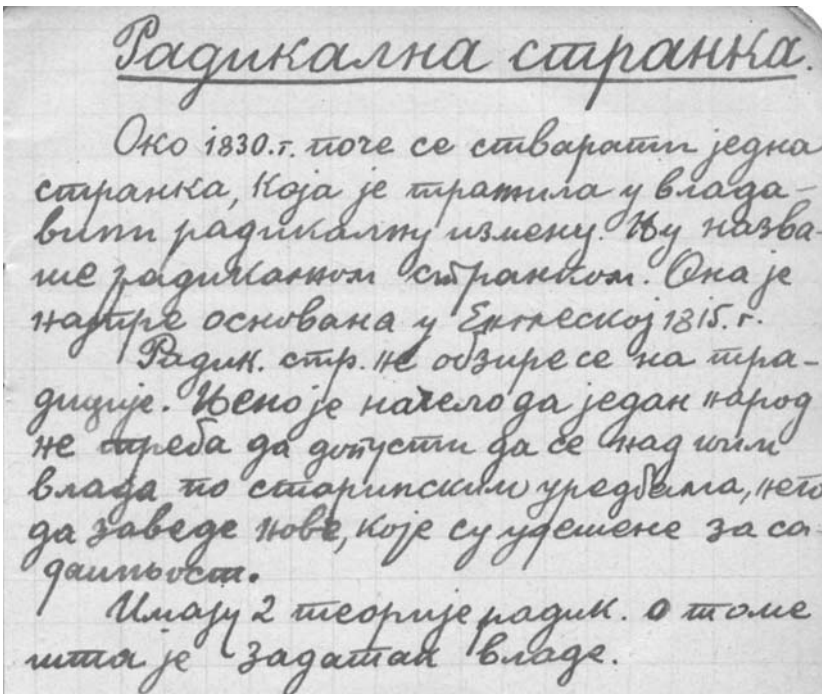 Радикална странка.
Око 1830. г. поче се стварати једна
странка, која је тражила у влада-
вини радикалну измену. Њу назва-
ше радикалном странком. Она је
најпре основана у Енглеској 1815. г.
Радик. стр. не обзире се на тра-
диције. Њено је начело да један народ
не треба да допусти да се над њим
влада по старинским уредбама, него
да заведе нове, које су удешене за са-
дањьост.
Имају 2 теорије радик. о томе
шта је задатак владе.